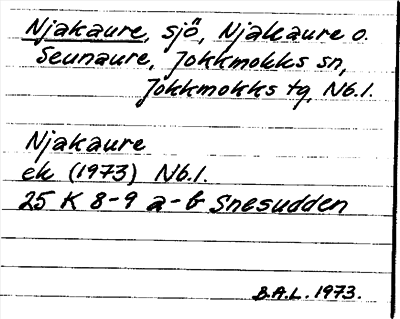 Njakaure, sjö, Njakaure o.
Seunaure, Jokkmokks sn,
Jokkmokks tg, Nb.l.
Njakaure
ek (1973) Nb.l.
25 K 8-9 a-b Snesudden
B.A.L. 1973.